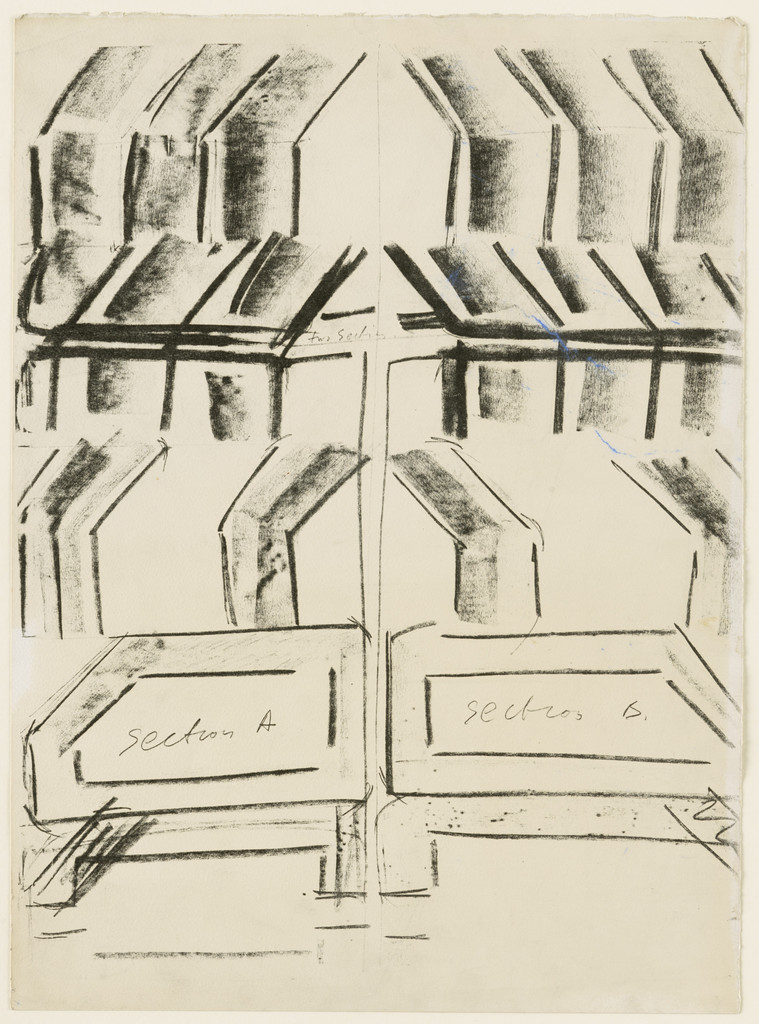 Two Section
Section A
Section B.